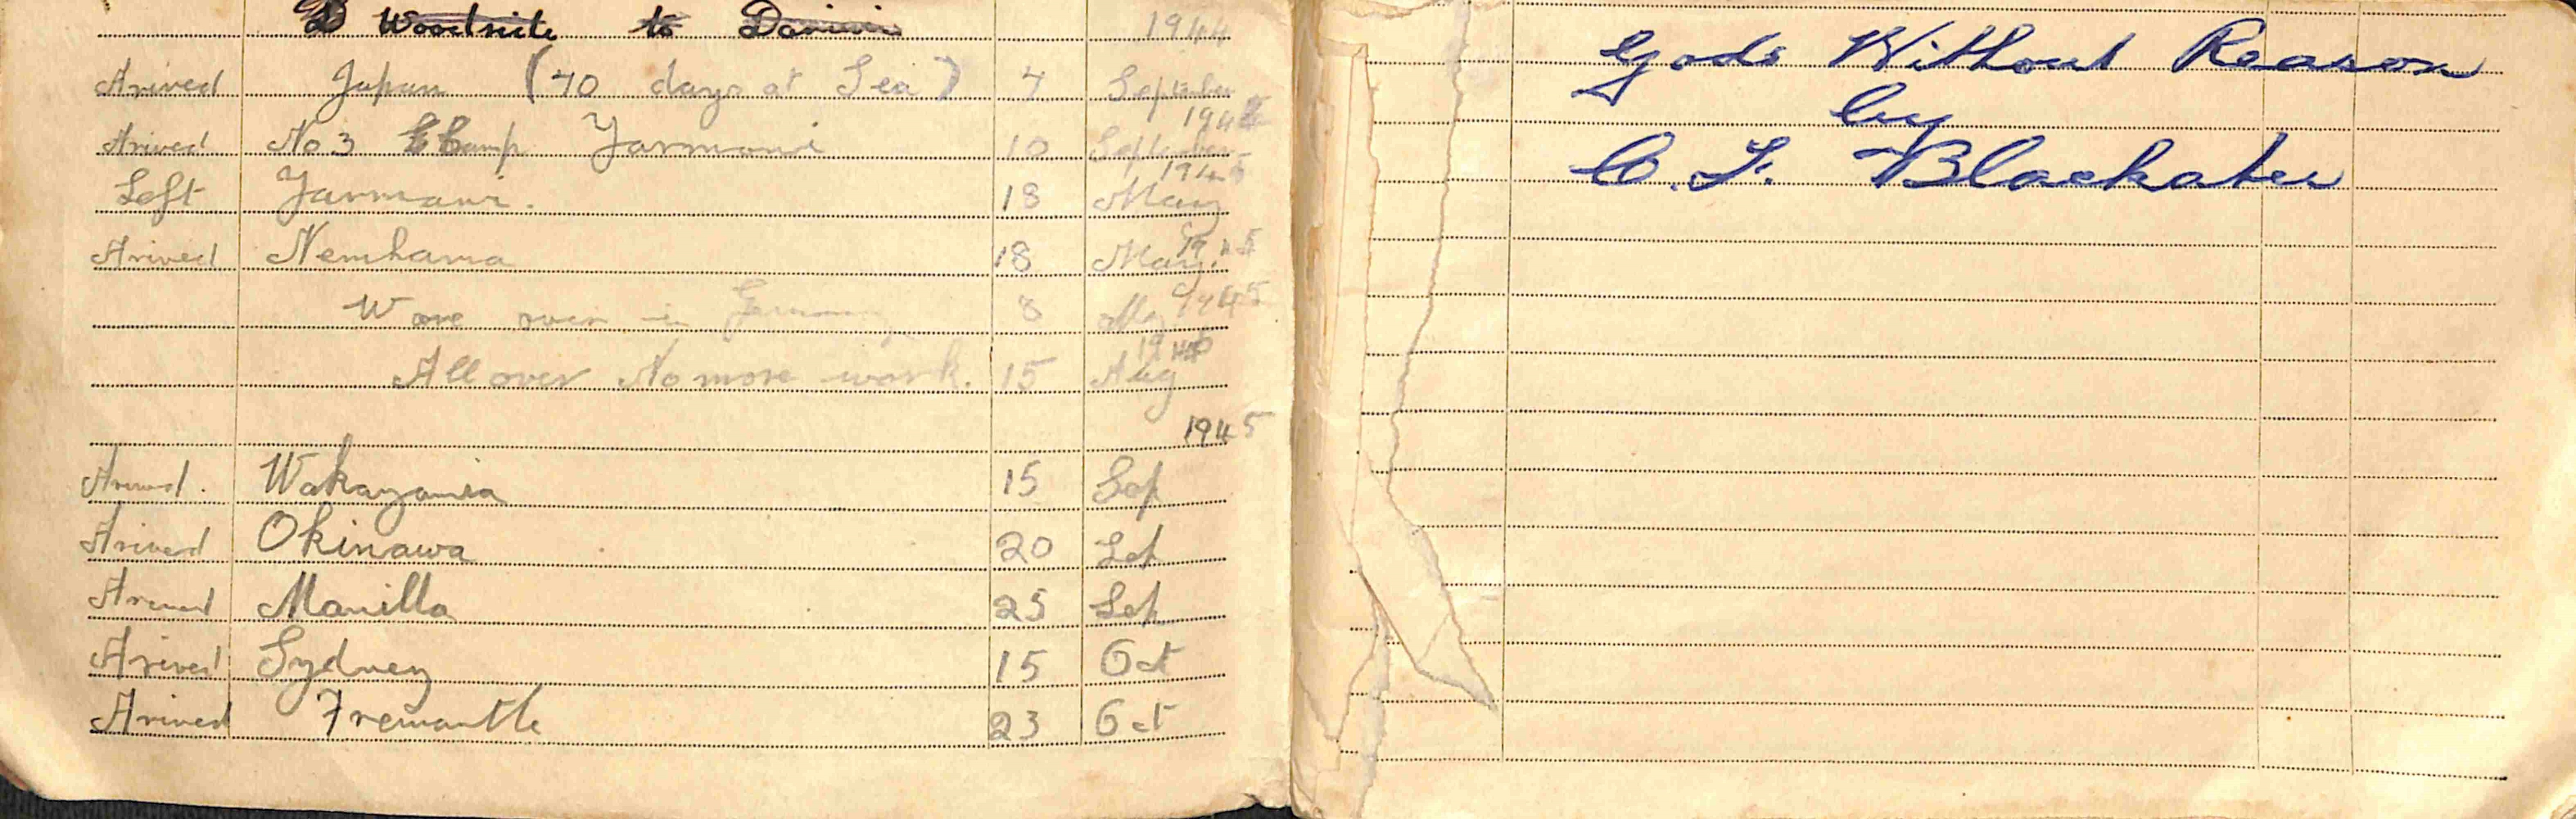 Woodside to Darwin 1944
Arived Japan (70 days at Sea) 7 September
1944
Arived No 3 Camp Yarmani 10 September
1945
Left Yarmani. 18 May
1945
Arived Nemhama 18 May
Wore over in Germany 8 May 1945
1945
All over No more work. 15 Aug
1945
Arived. Wakayama 15 Sep
Arived Okinawa 20 Sep
Arived Manilla 25 Sep
Arived Sydney 15 Oct
Arived Fremantle 23 Oct
Gods Without Reason
by
C. F. Blackater